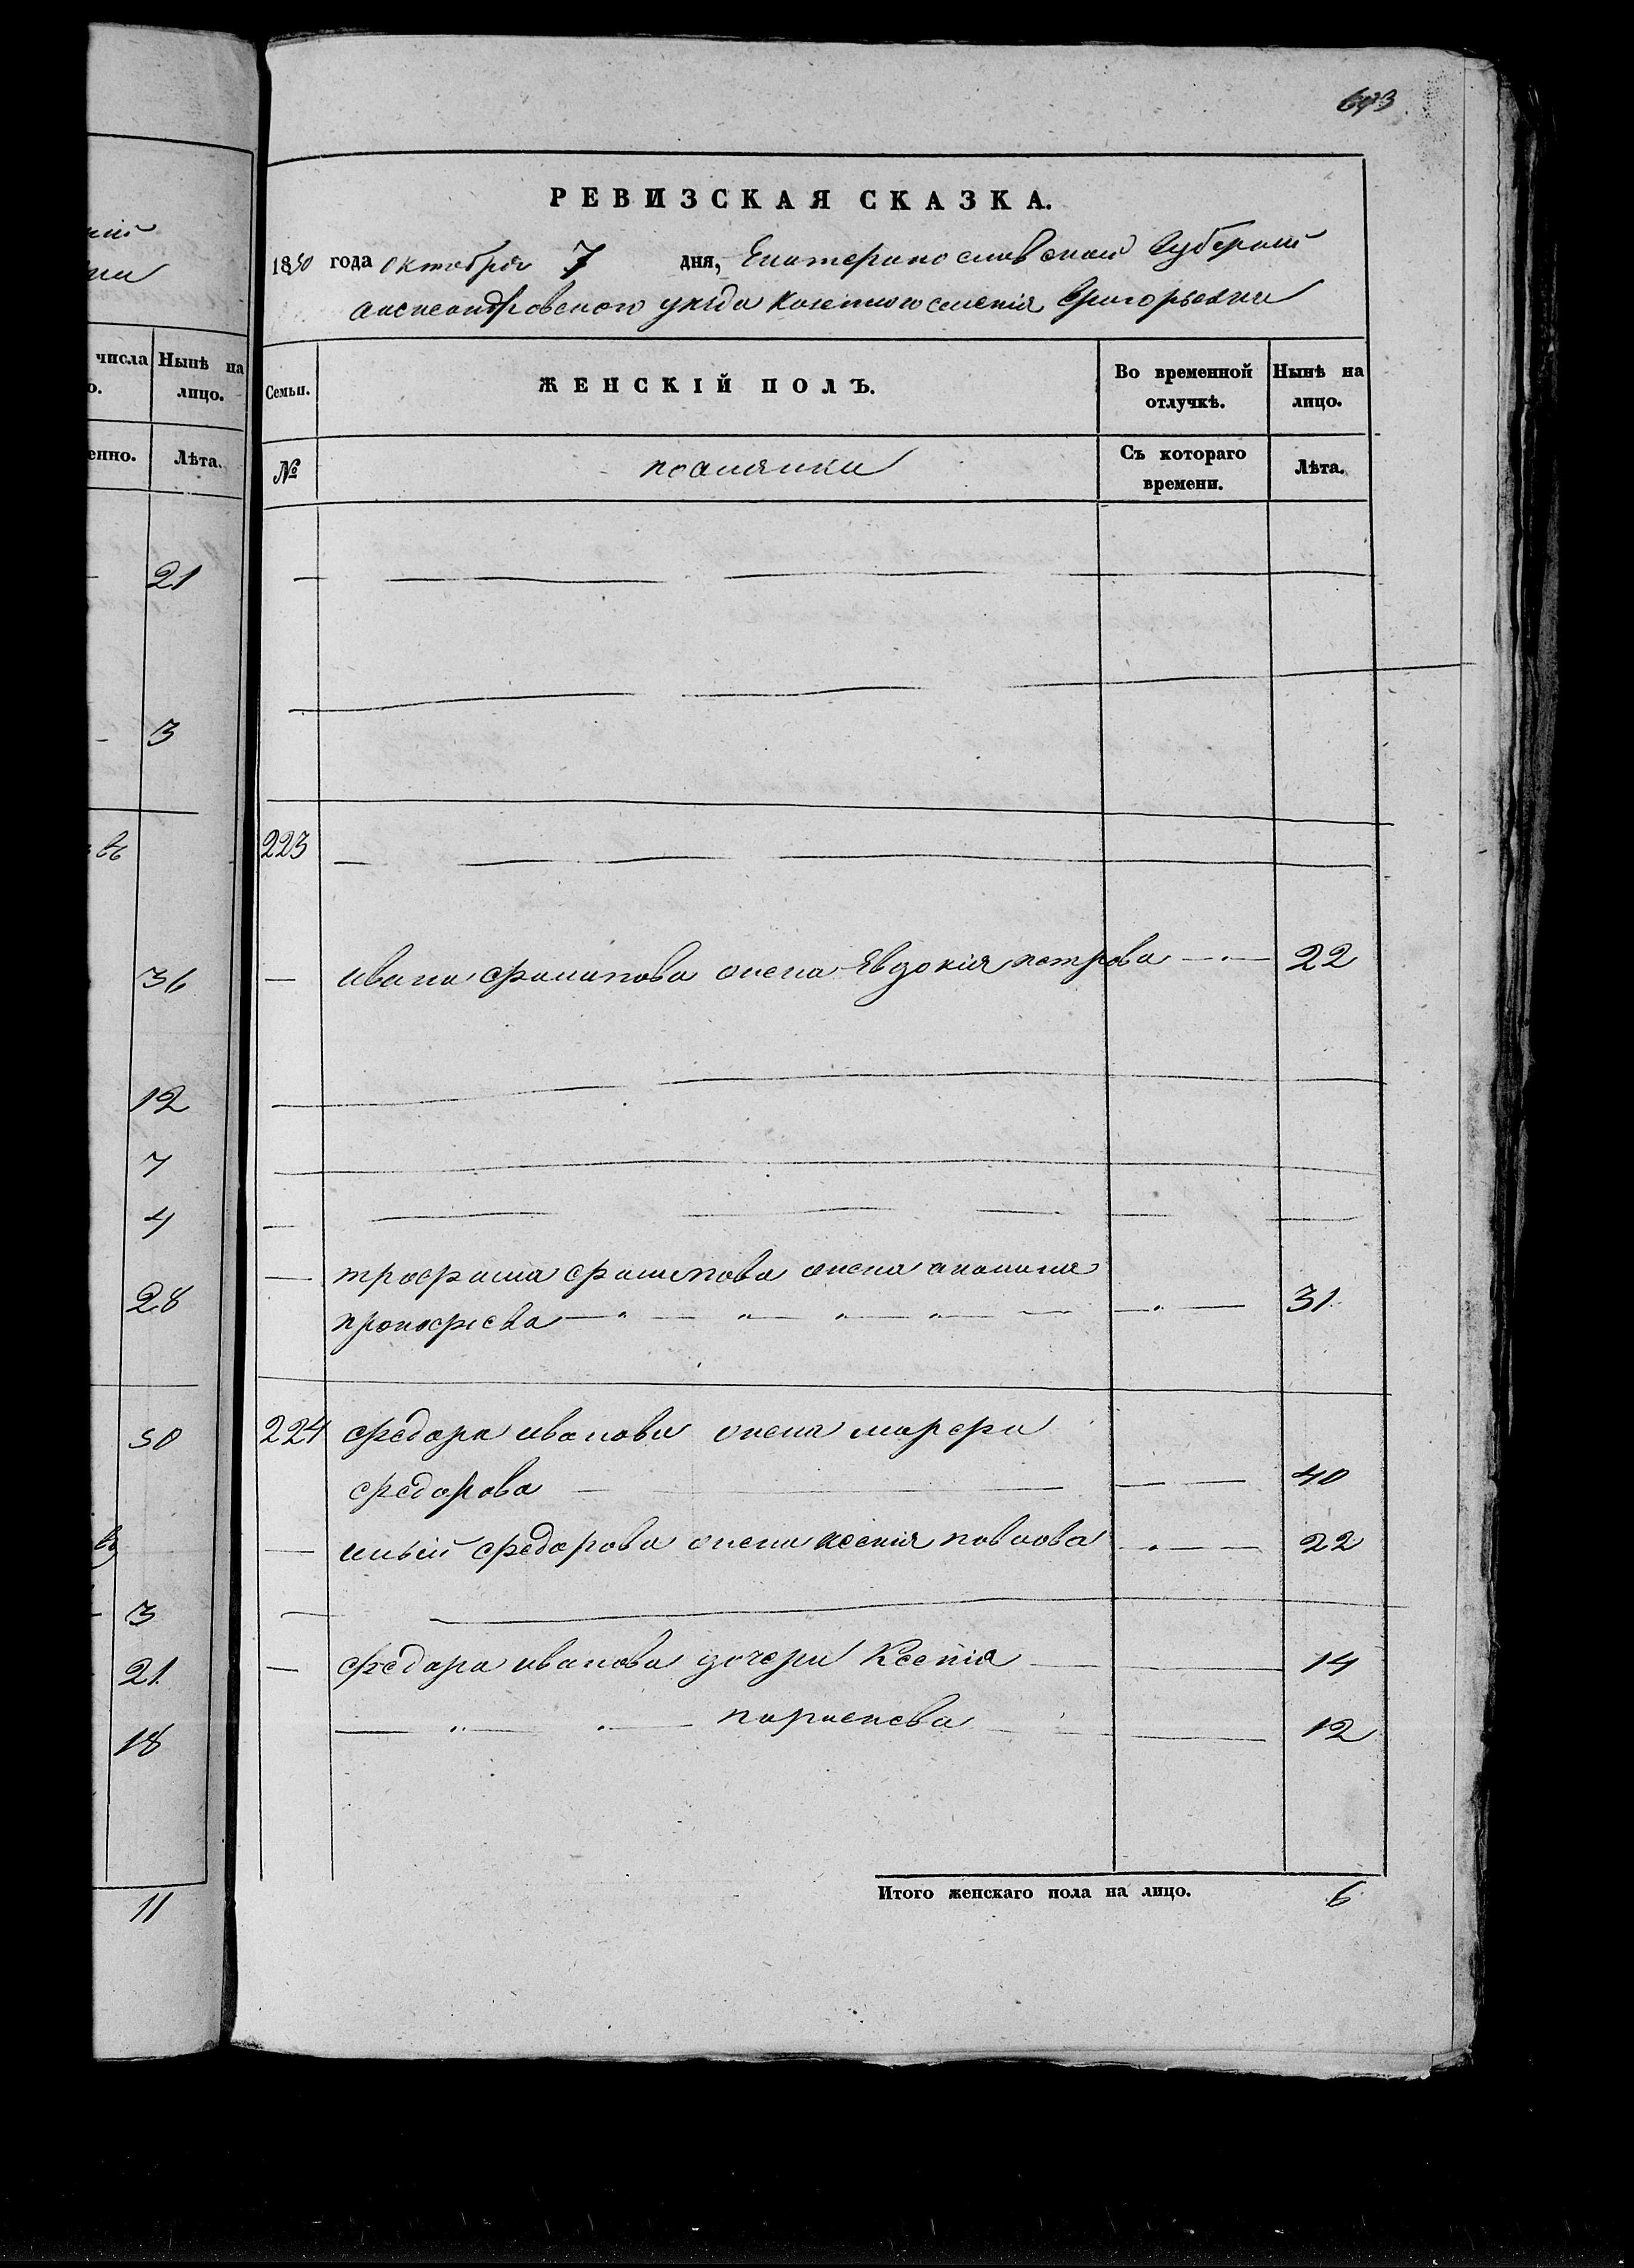 693
РЕВИЗСКАЯ СКАЗКА.
1850 года октября 7 дня, Екатеринославской Губернии
александровского уезда казенного селения Григорьевки
числа Нынѣ на лицо.
енно. Лѣта.
21
3
36
12
7
4
28
50
3
21
18
11
Семьи. ЖЕНСКІЙ ПОЛЪ. Во временной отлучкѣ. Нынѣ на лицо.
№ поселянки Съ котораго времени. Лѣта.
223
ивана филипова жена Явдокия петрова 22
трофима филипова жена акилина
прокофиева 31
224 федора иванова жена марфа
федорова 40
ильи федорова жена ксения павлова 22
федора иванова дочери Ксения 14
параскева 12
Итого женскаго пола на лицо. 6